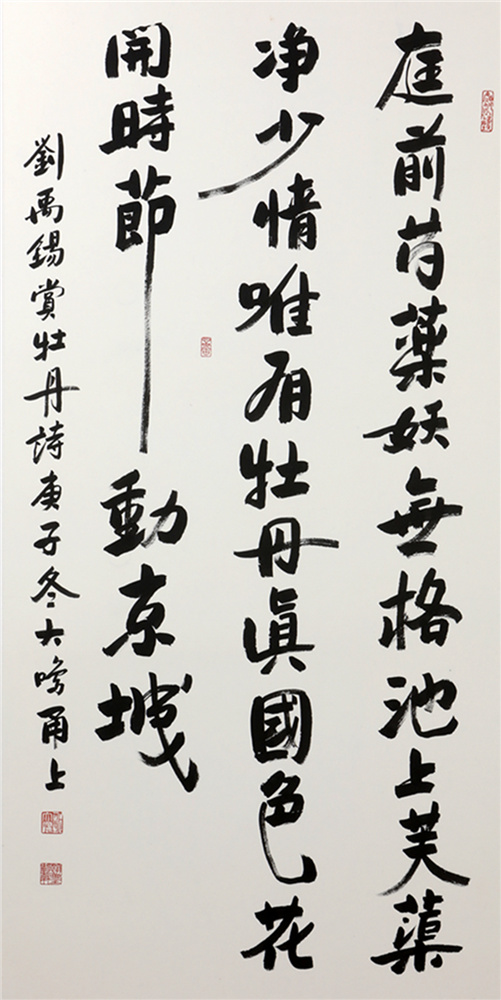 庭前芍藥妖無格池上芙蕖
净少情唯有牡丹真國色花
開時節動京城
劉禹錫賞牡丹詩庚子冬大吟甬上